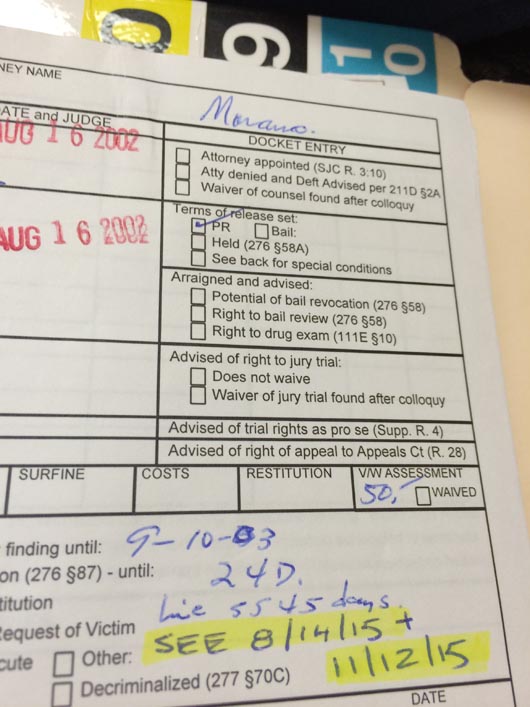 0
9
10
NEY NAME
ATE and JUDGE
Morano.
DOCKET ENTRY
AUG 16 2002
Attorney appointed (SJC R. 3:10)
Atty denied and Deft Advised per 211D §2A
Waiver of counsel found after colloquy
Terms of release set:
PR Bail:
AUG 16 2002
Held (276 §58A)
See back for special conditions
Arraigned and advised:
Potential of bail revocation (276 §58)
Right to bail review (276 §58)
Right to drug exam (111E §10)
Advised of right to jury trial:
Does not waive
Waiver of jury trial found after colloquy
Advised of trial rights as pro se (Supp. R. 4)
Advised of right of appeal to Appeals Ct (R. 28)
SURFINE COSTS RESTITUTION V/W ASSESSMENT
50. WAIVED
finding until: 9-10-03
on (276 §87) - until: 24D.
titution 5545 days.
Request of Victim SEE 8/14/15 +
cute Other: 11/12/15
Decriminalized (277 §70C)
DATE